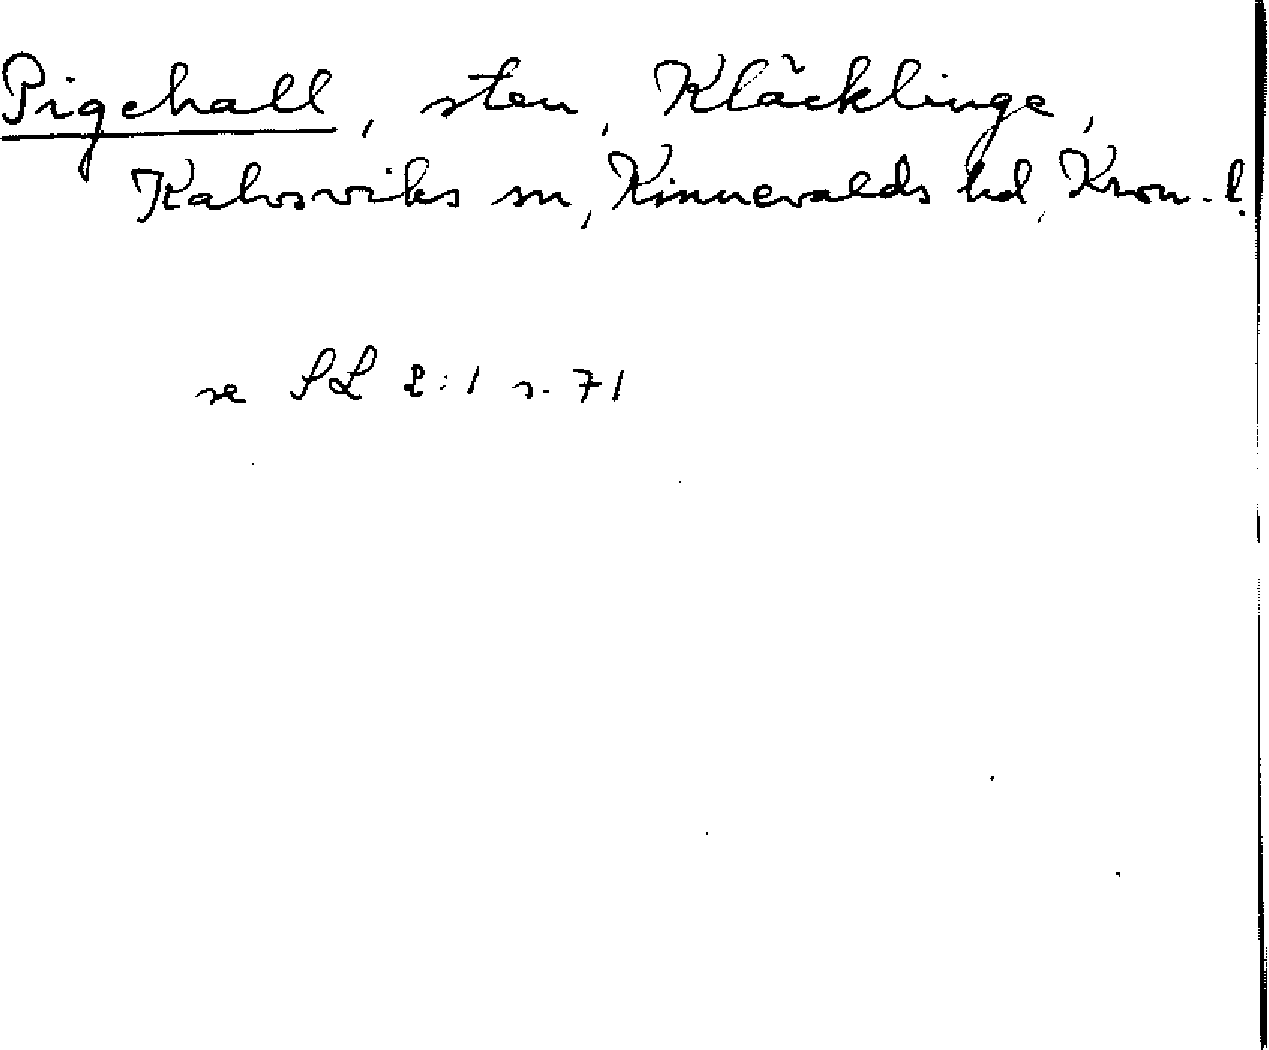 Pigehall, sten, Kläcklinge,
Kalvsviks sn, Kinnevalds hd, Kron. l.
se SL 2:1 s. 71